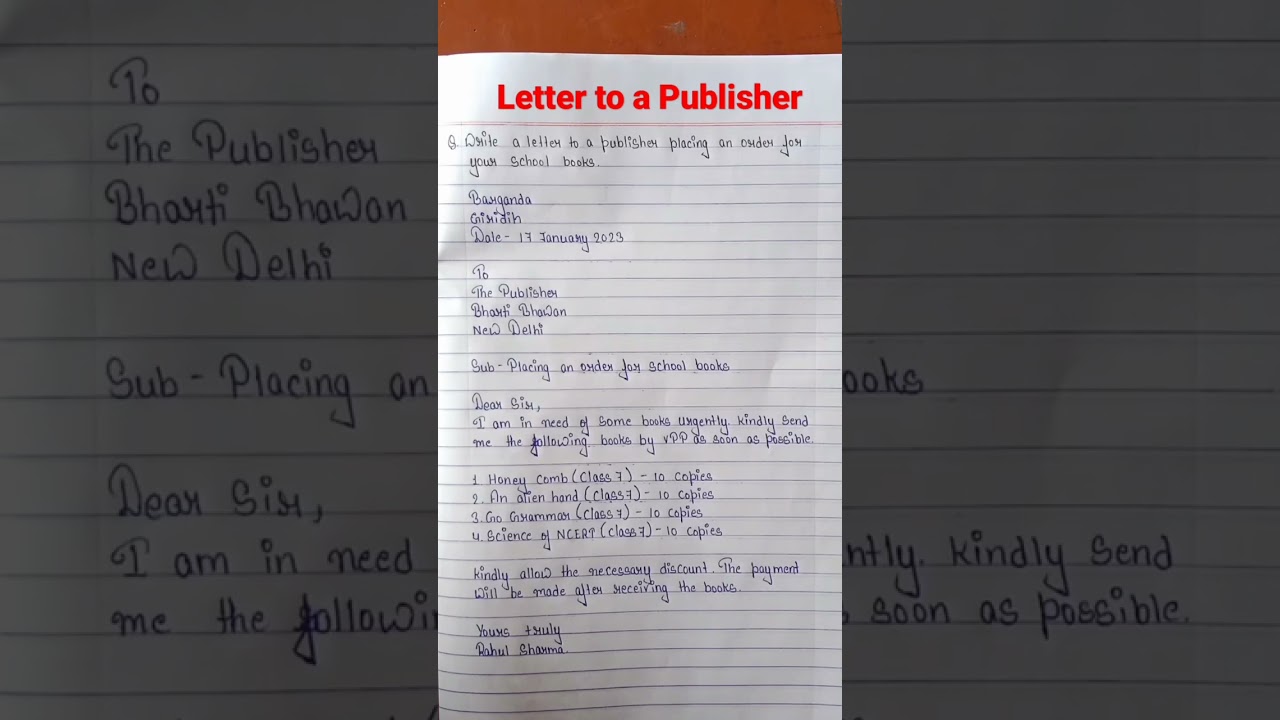 Letter to a Publisher
Q. Write a letter to a publisher placing an order for
your school books.
Barganda
Giridih
Date - 17 January 2023
To
The Publisher
Bharti Bhawan
New Delhi
Sub - Placing an order for school books
Dear Sir,
I am in need of some books urgently. Kindly send
me the following books by VPP as soon as possible.
1. Honey comb (Class 7) - 10 copies
2. An alien hand (Class 7) - 10 copies
3. Go Grammar (Class 7) - 10 copies
4. Science of NCERT (Class 7) - 10 copies
Kindly allow the necessary discount. The payment
will be made after receiving the books.
Yours truly
Rahul Sharma.
To
The Publisher
Bharti Bhawan
New Delhi
Sub - Placing an
ooks
Dear Sir,
I am in need
ntly. Kindly Send
me the followi
s soon as possible.